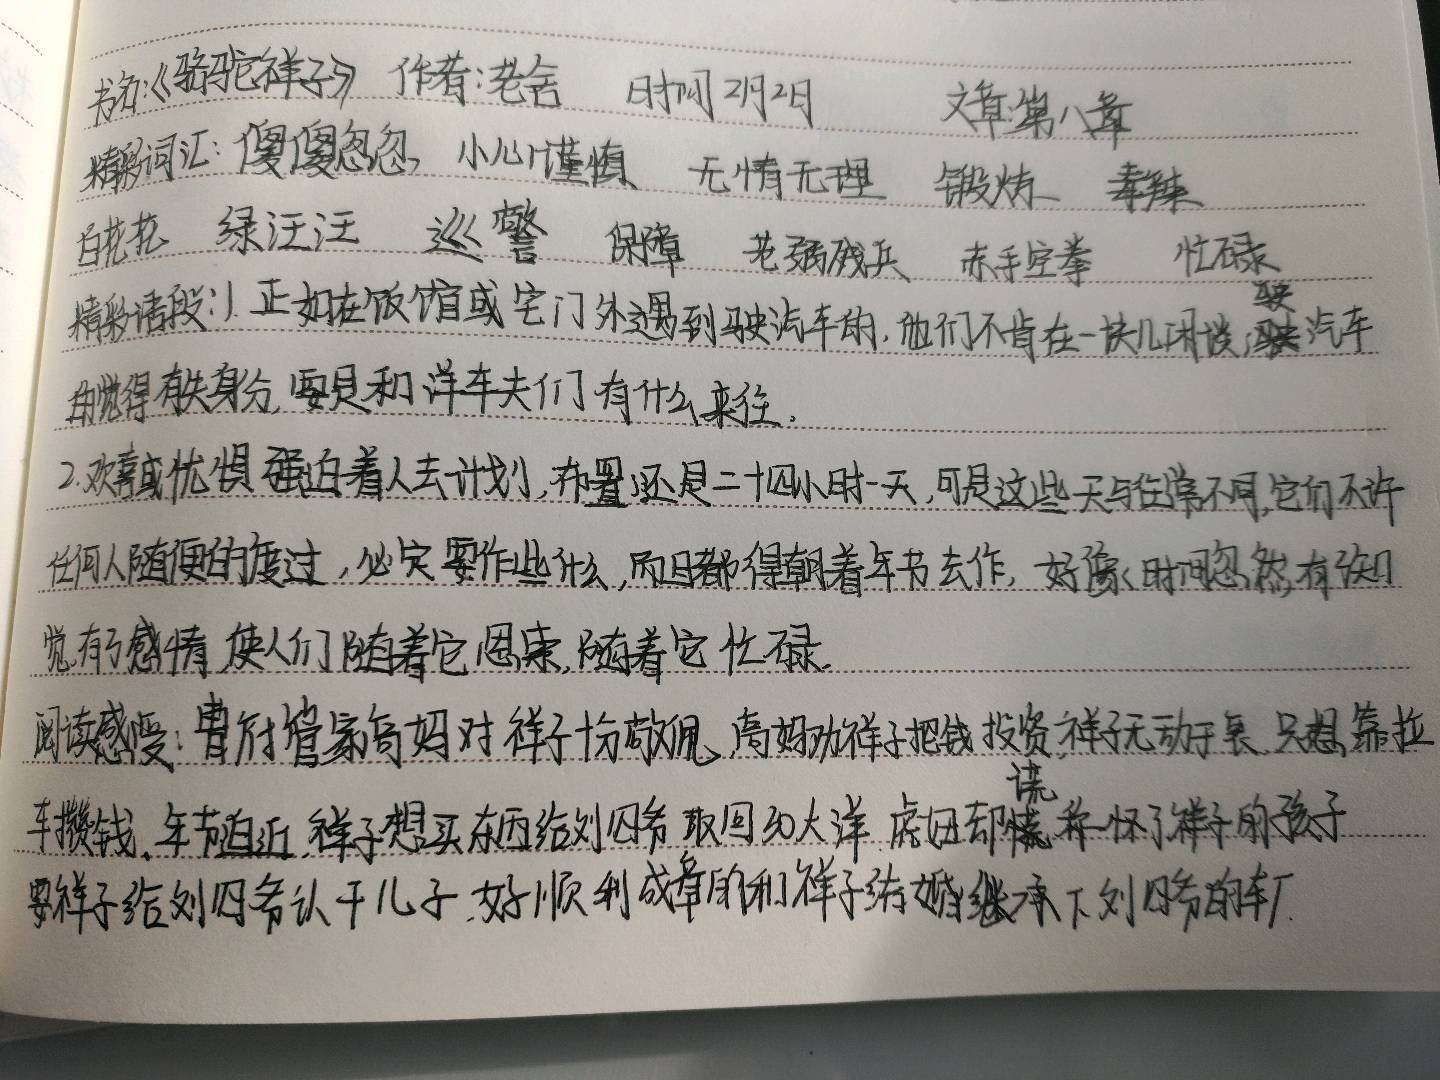 书名:《骆驼祥子》 作者:老舍 时间2月2日 文章:第八章
精彩词汇: 傻傻忽忽, 小心谨慎 无情无理 锻炼 毒辣
白花花 绿汪汪 巡警 保障 老弱残兵 赤手空拳 忙碌
精彩语段:1.正如在饭馆或宅门外遇到驶汽车的,他们不肯在一块儿闲谈;驶汽车
的觉得有失身分,要是和洋车夫们有什么来往.
2.欢喜或忧惧强迫着人去计划,布置;还是二十四小时一天,可是这些天与往常不同,它们不许
任何人随便的度过,必定要作些什么,而且都得朝着年节去作,好像时间忽然有知
觉,有了感情,使人们随着它思索,随着它忙碌.
阅读感受:曹府管家高妈对祥子十分敬佩、高妈劝祥子把钱投资,祥子无动于衷,只想靠拉
车攒钱、年节迫近,祥子想买东西给刘四爷取回30大洋,虎妞却谎称怀了祥子的孩子
要祥子给刘四爷认干儿子,好顺利成章的和祥子结婚继承下刘四爷的车厂.